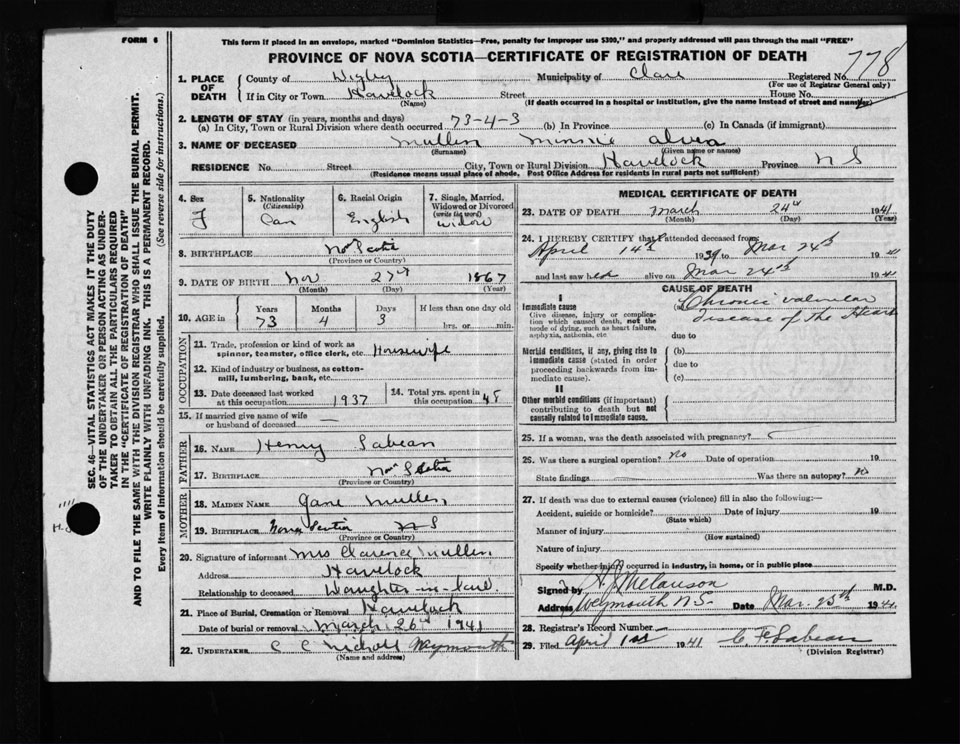 FORM 6
This form if placed in an envelope, marked "Dominion Statistics—Free, penalty for improper use $300," and properly addressed will pass through the mail "FREE"
PROVINCE OF NOVA SCOTIA—CERTIFICATE OF REGISTRATION OF DEATH
778
SEC. 46—VITAL STATISTICS ACT MAKES IT THE DUTY
OF THE UNDERTAKER OR PERSON ACTING AS UNDER-
TAKER TO OBTAIN ALL THE PARTICULARS REQUIRED
IN THE "CERTIFICATE OF REGISTRATION OF DEATH"
AND TO FILE THE SAME WITH THE DIVISION REGISTRAR WHO SHALL ISSUE THE BURIAL PERMIT.
WRITE PLAINLY WITH UNFADING INK. THIS IS A PERMANENT RECORD.
Every item of information should be carefully supplied. (See reverse side for instructions.)
1. PLACE OF DEATH
County of Digby Municipality of Clare Registered No.
(For use of Registrar General only)
If in City or Town Havelock Street House No.
(Name) (If death occurred in a hospital or institution, give the name instead of street and number)
2. LENGTH OF STAY (in years, months and days)
(a) In City, Town or Rural Division where death occurred 73-4-3 (b) In Province (c) In Canada (if immigrant)
3. NAME OF DECEASED Mullen Minnie
(Surname) (Given name or names)
RESIDENCE No. Street City, Town or Rural Division Havelock Province N S
(Residence means usual place of abode, Post Office Address for residents in rural parts not sufficient)
4. Sex
F
5. Nationality
(Citizenship)
Can
6. Racial Origin
English
7. Single, Married,
Widowed or Divorced
(write the word)
Widow
8. BIRTHPLACE Nova Scotia
(Province or Country)
9. DATE OF BIRTH Nov 27th 1867
(Month) (Day) (Year)
10. AGE in
Years 73
Months 4
Days 3
If less than one day old
hrs. or min.
OCCUPATION
11. Trade, profession or kind of work as
spinner, teamster, office clerk, etc. Housewife
12. Kind of industry or business, as cotton-
mill, lumbering, bank, etc.
13. Date deceased last worked
at this occupation 1937
14. Total yrs. spent in
this occupation 48
15. If married give name of wife
or husband of deceased —
FATHER
16. NAME Henry Sabean
17. BIRTHPLACE Nova Scotia
(Province or Country)
MOTHER
18. MAIDEN NAME Jane Mullen
19. BIRTHPLACE Nova Scotia N S
(Province or Country)
20. Signature of informant Mrs Clarence Mullen
Address Havelock
Relationship to deceased Daughter-in-law
21. Place of Burial, Cremation or Removal Havelock
Date of burial or removal March 26th 1941
22. UNDERTAKER C C Nichols Weymouth
(Name and address)
MEDICAL CERTIFICATE OF DEATH
23. DATE OF DEATH March 24th 1941
(Month) (Day) (Year)
24. I HEREBY CERTIFY that I attended deceased from:
April 14th 1939 to Mar 24th 1941
and last saw her alive on Mar 24th 1941
CAUSE OF DEATH
I
Immediate cause
Give disease, injury or complica-
tion which caused death, not the
mode of dying, such as heart failure,
asphyxia, asthenia, etc
(a) Chronic valvular
disease of the Heart
due to
Morbid conditions, if any, giving rise to
immediate cause (stated in order
proceeding backwards from im-
mediate cause).
(b)
due to
(c)
II
Other morbid conditions (if important)
contributing to death but not
causally related to immediate cause.
25. If a woman, was the death associated with pregnancy?
26. Was there a surgical operation? No Date of operation 19
State findings Was there an autopsy? No
27. If death was due to external causes (violence) fill in also the following:—
Accident, suicide or homicide? Date of injury 19
(State which)
Manner of injury
(How sustained)
Nature of injury
Specify whether injury occurred in industry, in home, or in public place
Signed by H J Melanson M.D.
Address Weymouth N.S. Date Mar. 25th 1941
28. Registrar's Record Number
29. Filed April 1st 1941 C F Sabean
(Division Registrar)